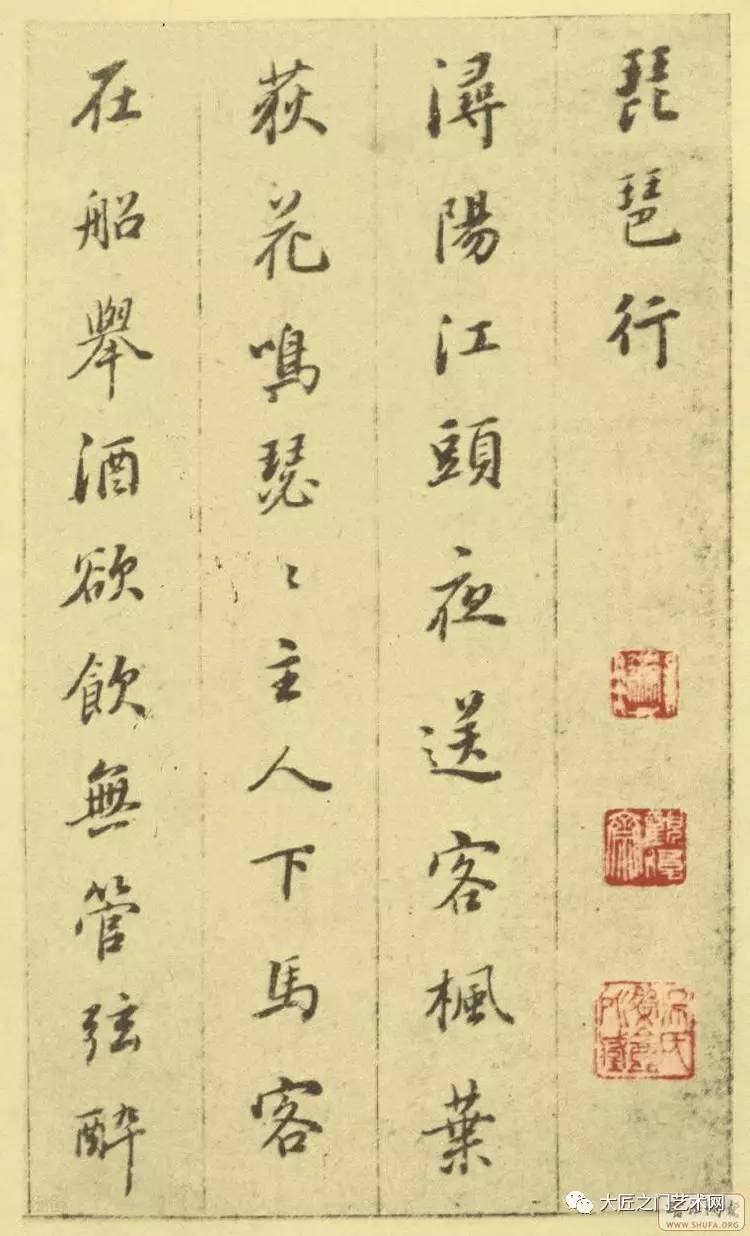 琵琶行
潯陽江頭夜送客楓葉
荻花鳴瑟〻主人下馬客
在船舉酒欲飲無管弦醉
大匠之门艺术网
WWW.SHUFA.ORG